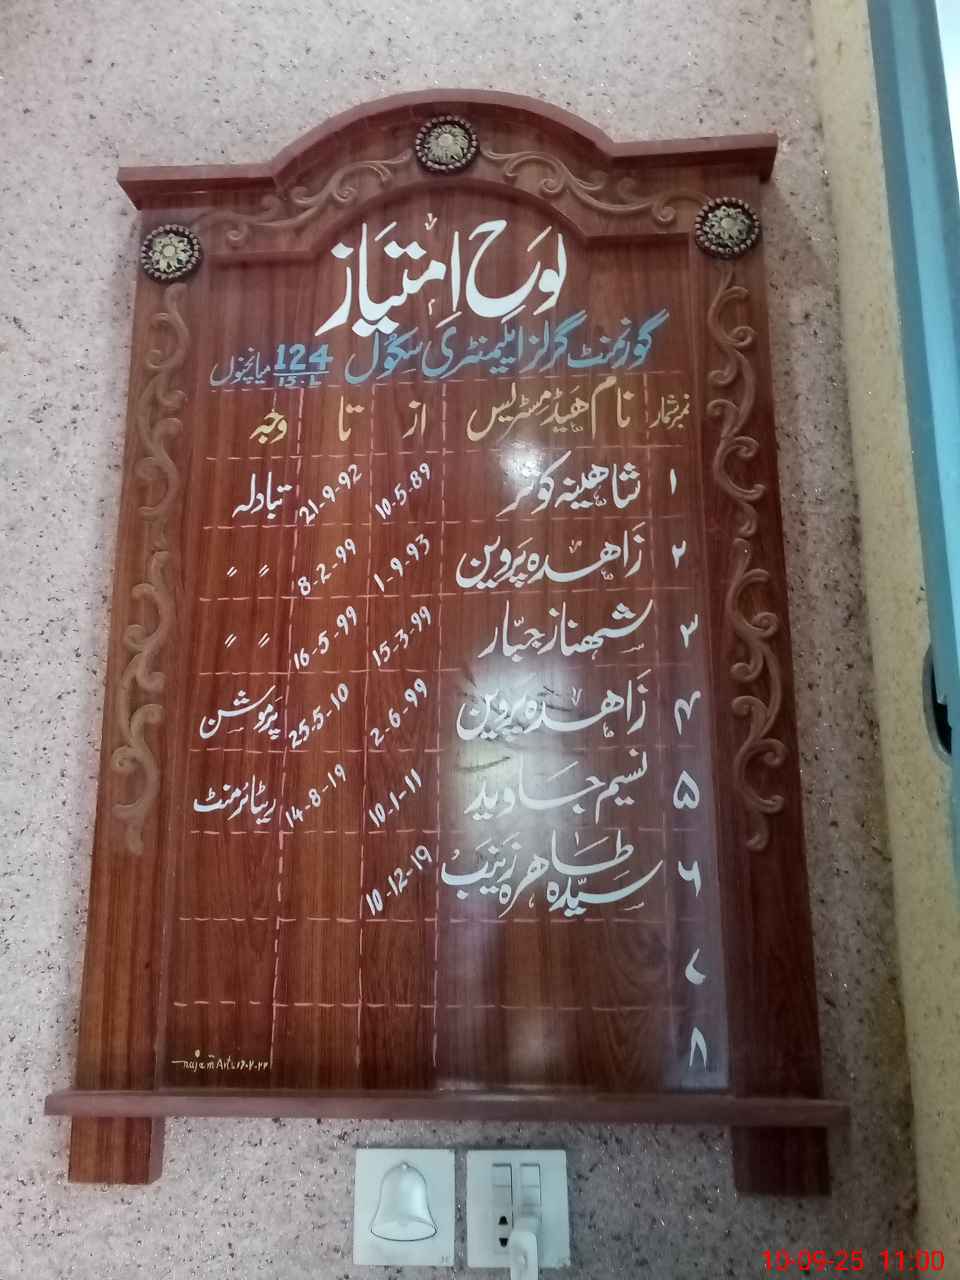 لوحِ امتیاز
گورنمنٹ گرلز ایلیمنٹری سکول 124/15.L میانچنوں
نمبر شمار نام ھیڈ مسٹریس از تا وجہ
۱ شاھینہ کوثر 10-5-89 21-9-92 تبادلہ
۲ زاھدہ پروین 1-9-93 8-2-99 〃 〃
۳ شھناز جبّار 15-3-99 16-5-99 〃 〃
۴ زاھدہ پروین 2-6-99 25-5-10 پرموشن
۵ نسیم جاوید 10-1-11 14-8-19 ریٹائرمنٹ
۶ سیّدہ طاھرہ زینب 10-12-19
۷
۸
najam Arts
10-09-25 11:00